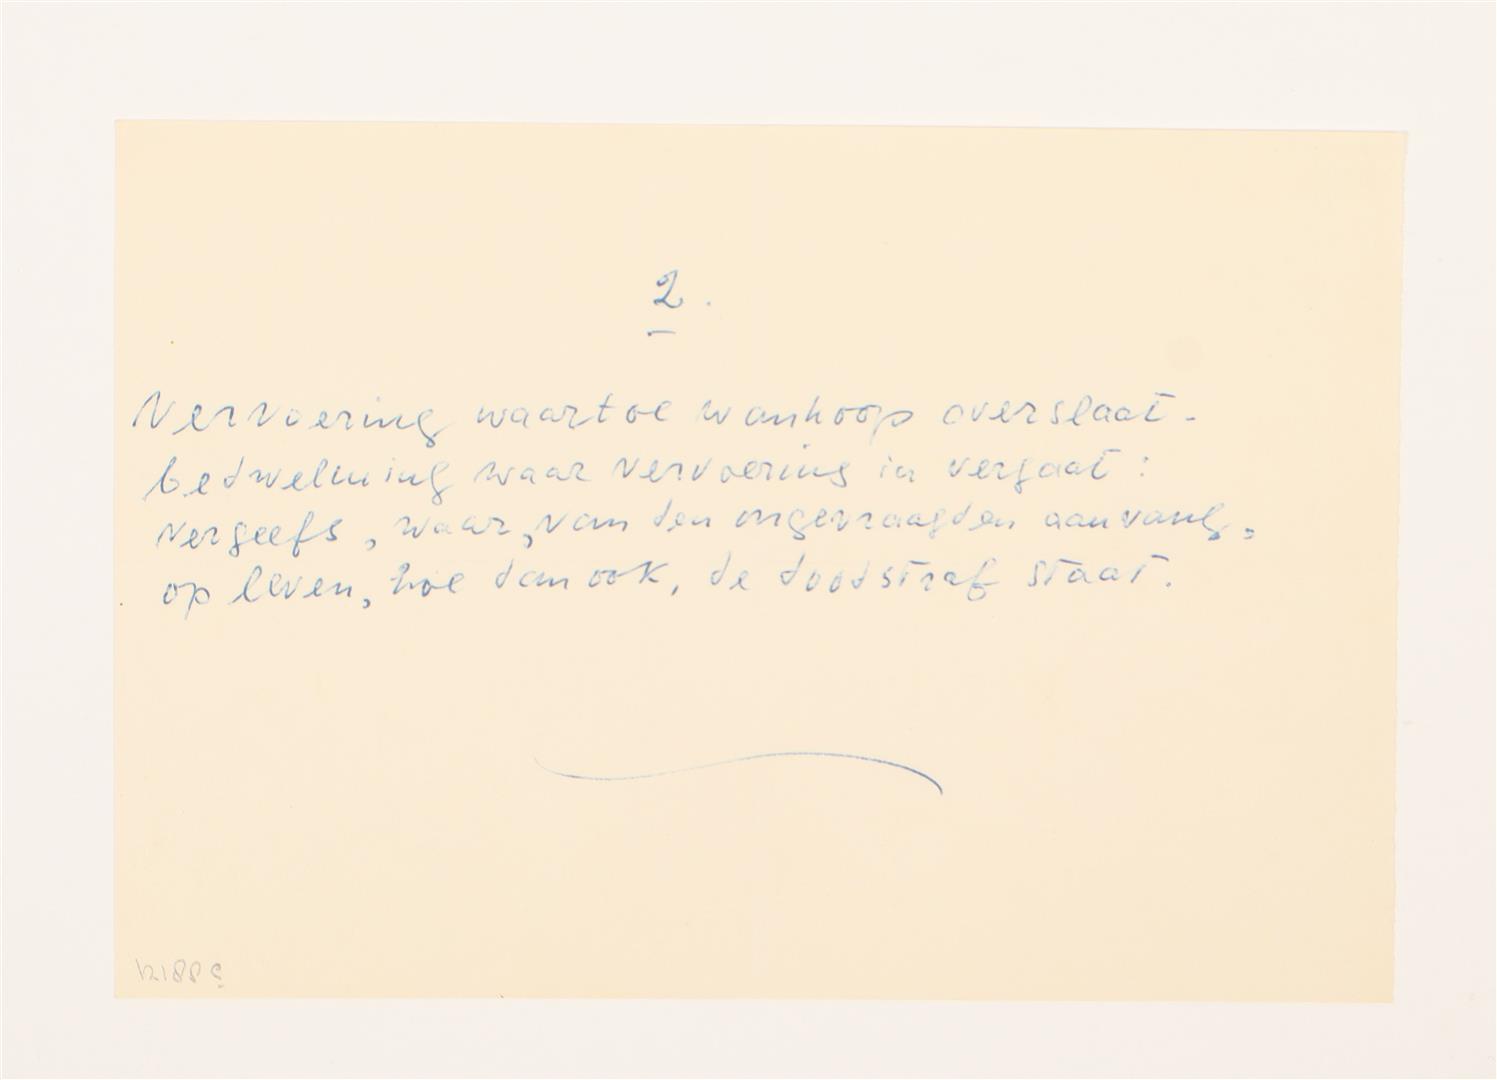 2.
Vervoering waartoe wanhoop overslaat -
bedwelming waar vervoering in vergaat:
vergeefs, waar, van den ongevraagden aanvang,
op leven, hoe dan ook, de doodstraf staat.